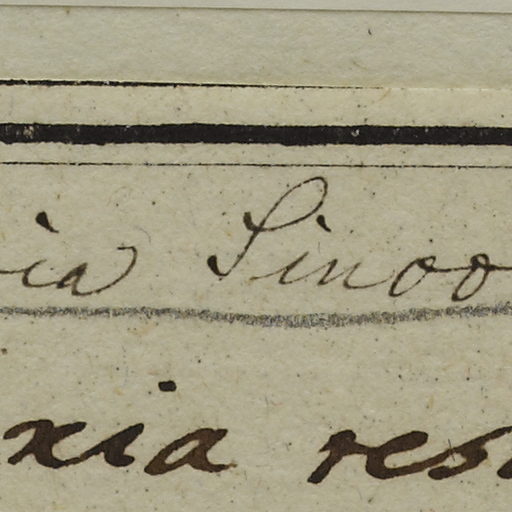 ia Sinoo
xia res